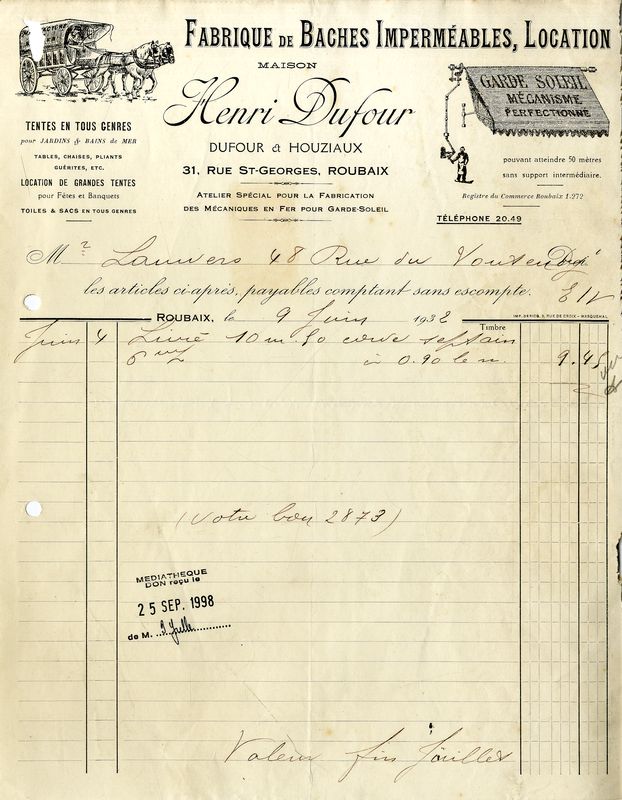 FABRIQUE DE BACHES IMPERMÉABLES, LOCATION
MAISON
Henri Dufour
DUFOUR & HOUZIAUX
31, RUE ST-GEORGES, ROUBAIX
ATELIER SPÉCIAL POUR LA FABRICATION
DES MÉCANIQUES EN FER POUR GARDE-SOLEIL
TENTES EN TOUS GENRES
pour JARDINS & BAINS de MER
TABLES, CHAISES, PLIANTS
GUÉRITES, ETC.
LOCATION DE GRANDES TENTES
pour Fêtes et Banquets
TOILES & SACS EN TOUS GENRES
GARDE SOLEIL
MÉCANISME
PERFECTIONNÉ
pouvant atteindre 50 mètres
sans support intermédiaire.
Registre du Commerce Roubaix 1.272
TÉLÉPHONE 20.49
M Lauwers 48 Rue du
les articles ci-après, payables comptant sans escompte. E/V
ROUBAIX, le 9 Juin 1932
Timbre
IMP. DERIES, 9, RUE DE CROIX - WASQUEHAL
Juin 4 Livré 10 m. 50 corde septain
à 0.90 le m. 9.45
(Votre bon 2873)
MEDIATHEQUE
DON reçu le
25 SEP. 1998
de M.
Valeur fin Juillet